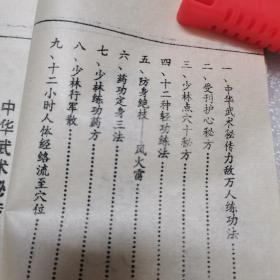 一、中华武术秘传力敌万人练功法⋯⋯
二、受刑护心秘方⋯⋯
三、少林点穴十秘方⋯⋯
四、十二种轻功练法⋯⋯
五、防身绝技 风火雷⋯⋯
六、药功定身三法⋯⋯
七、少林练功药方⋯⋯
八、少林行军散⋯⋯
九、十二小时人体经络流至穴位⋯⋯
中华武术秘